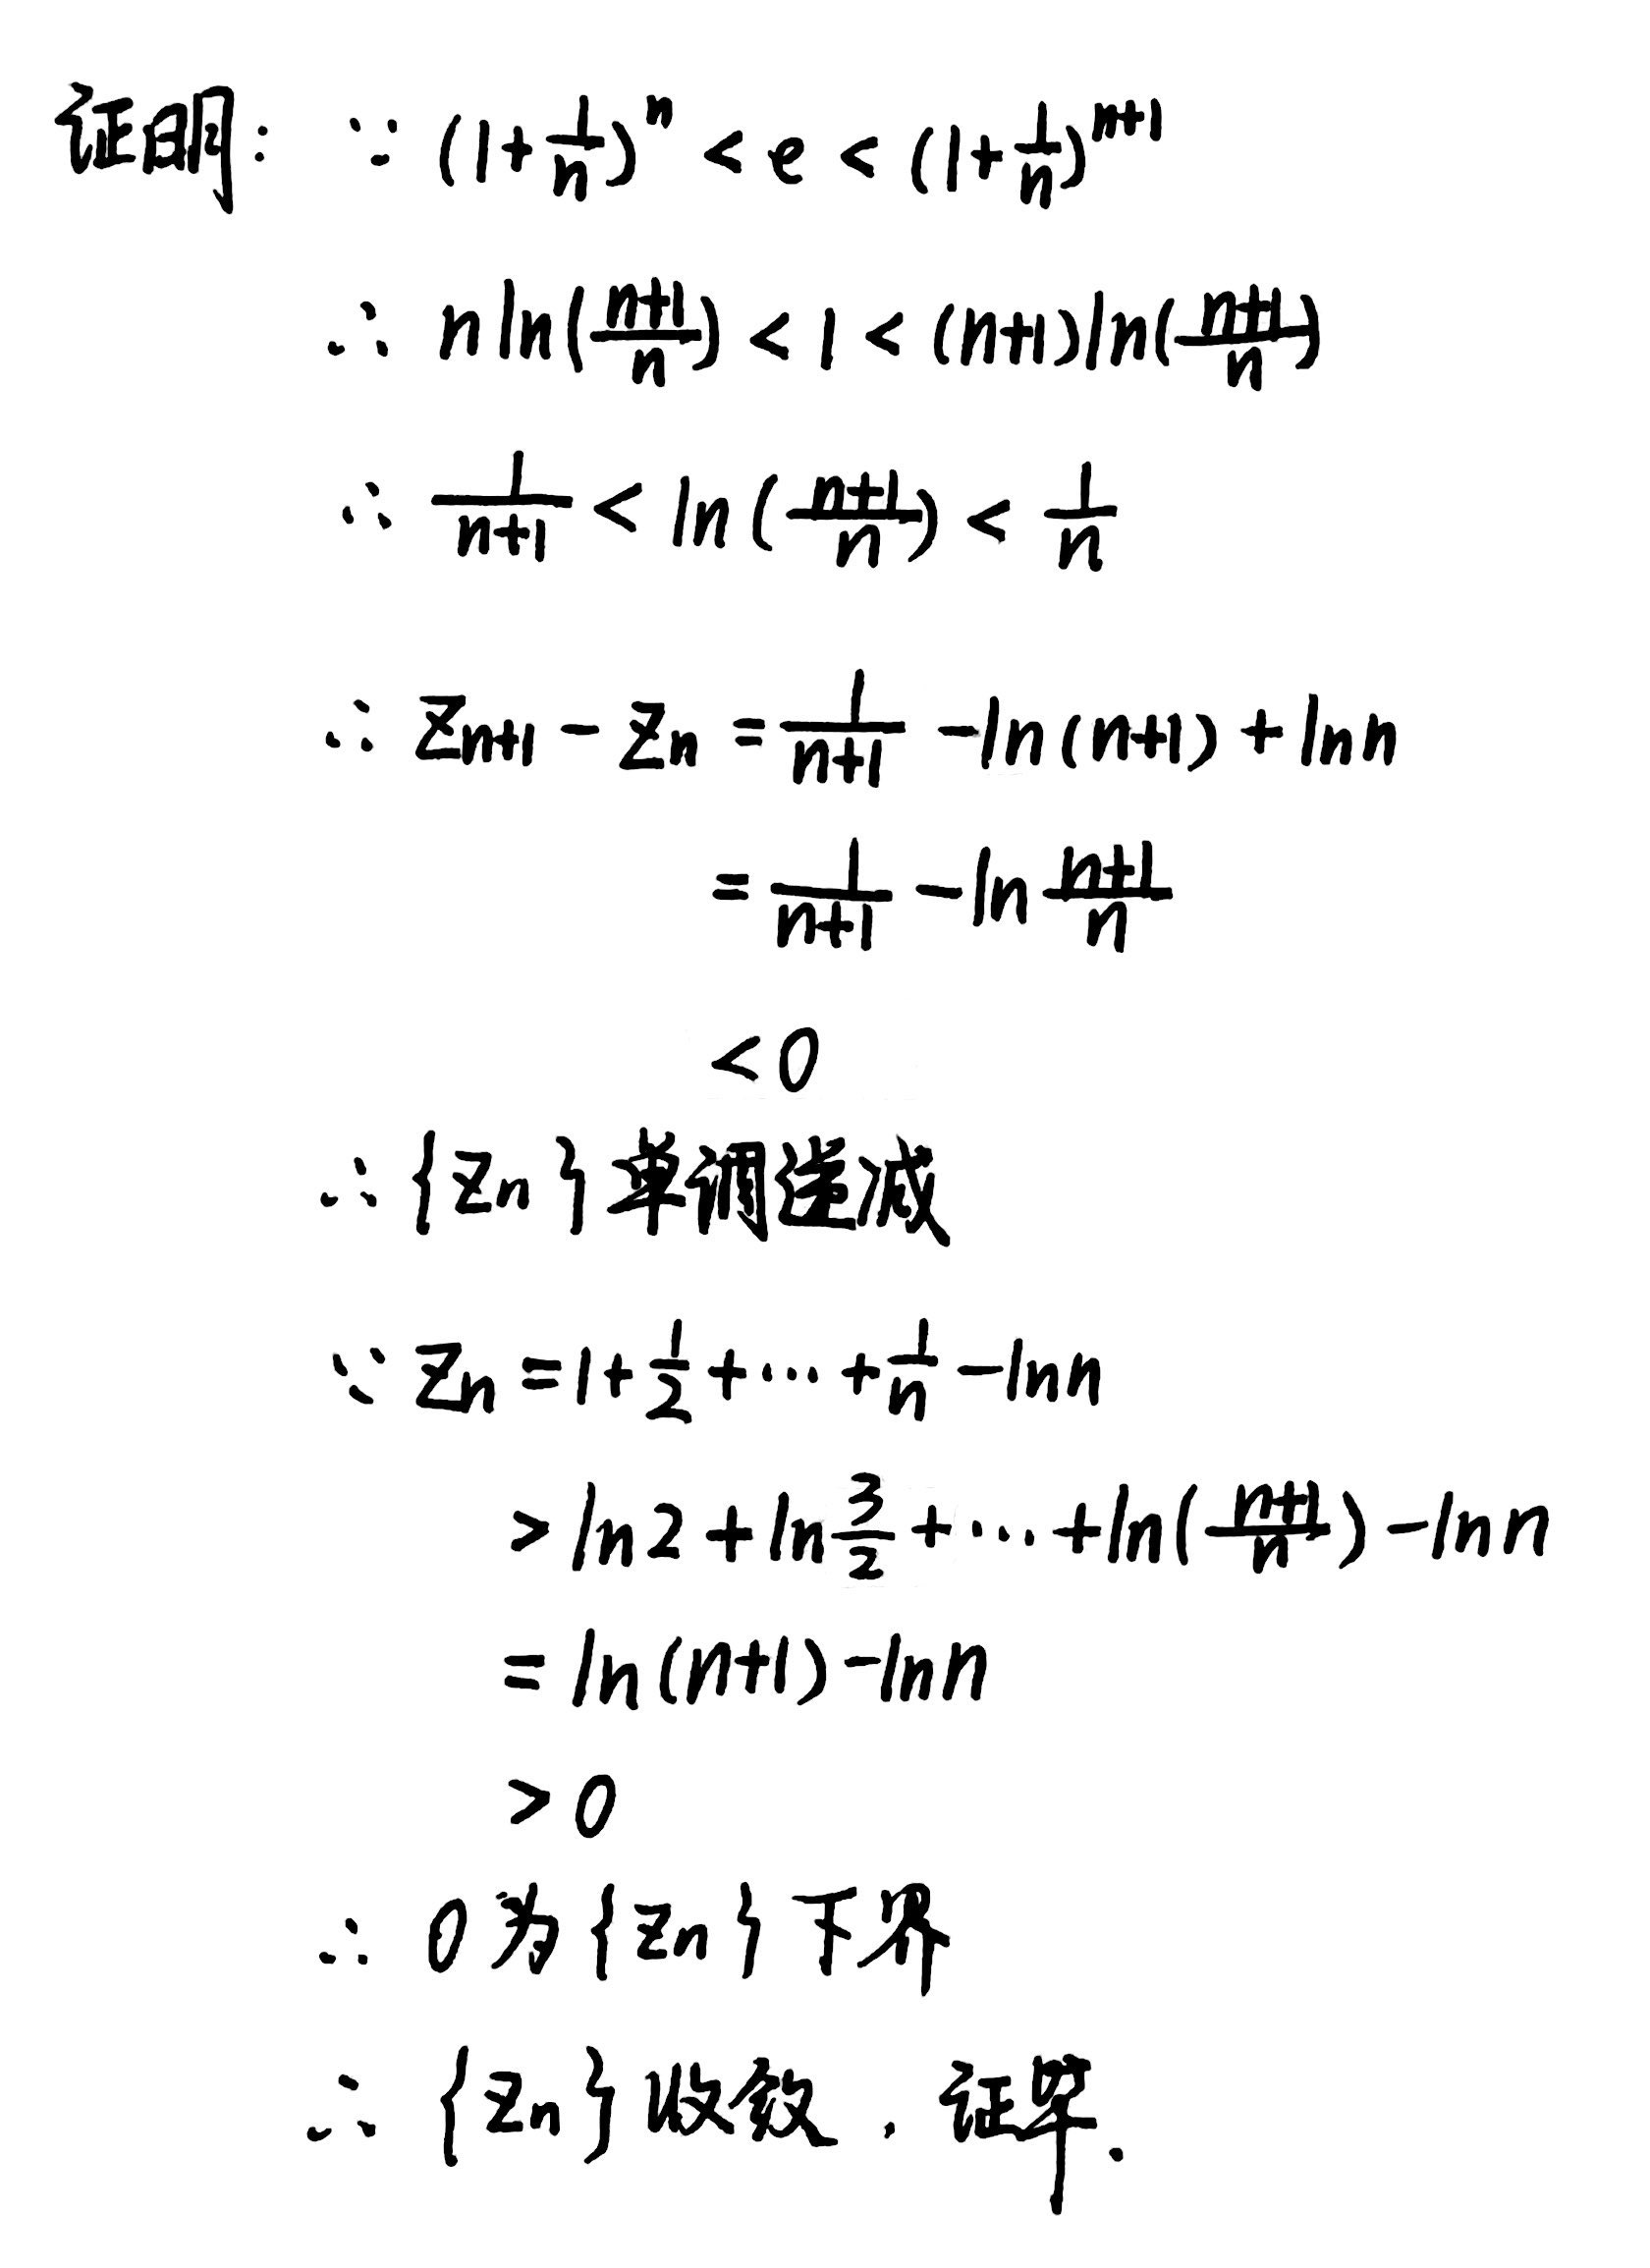 证明: ∵ (1+1/n)^n < e < (1+1/n)^{n+1}
∴ n ln((n+1)/n) < 1 < (n+1)ln((n+1)/n)
∴ 1/(n+1) < ln((n+1)/n) < 1/n
∴ Zn+1 - Zn = 1/(n+1) - ln(n+1) + ln n
= 1/(n+1) - ln (n+1)/n
< 0
∴ {Zn} 单调递减
∵ Zn = 1 + 1/2 + ⋯ + 1/n - ln n
> ln 2 + ln 3/2 + ⋯ + ln((n+1)/n) - ln n
= ln(n+1) - ln n
> 0
∴ 0为{Zn}下界
∴ {Zn}收敛，证毕.